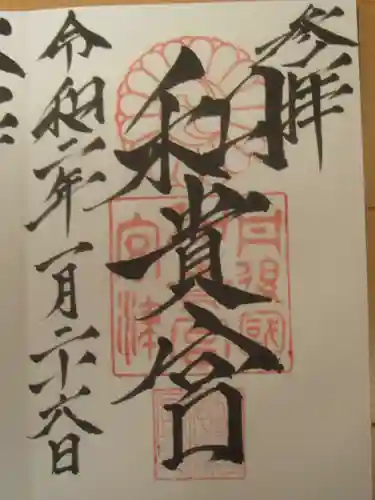 参拝
和貴宮
令和二年一月二十六日
丹後國
和貴宮
宮津